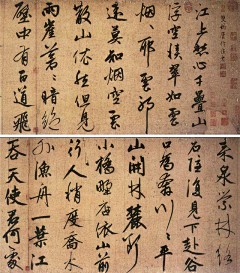 江上愁心千疊山
浮空積翠如雲
煙山耶雲耶
遠莫知煙空雲
散山依然但見
兩崖蒼蒼暗絕
中有百道飛
來泉縈林絡
石隱復見下赴谷
口為奔川川平
山開林麓斷
小橋野店依山前
行人稍度喬木
外漁舟一葉江
吞天使君何處